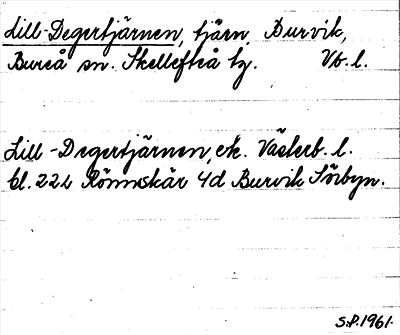 Lill-Degertjärnen, tjärn, Burvik,
Bureå sn. Skellefteå tg. Vb. l.
Lill-Degertjärnen, ek. Västerb. l.
bl. 22L Rönnskär 4d Burvik Sörbyn.
S.P. 1961.